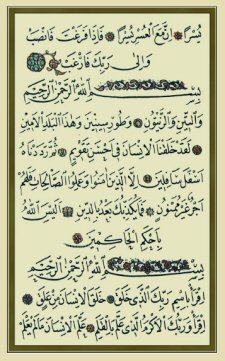 يُسْرًا ۝ إِنَّ مَعَ الْعُسْرِ يُسْرًا ۝ فَإِذَا فَرَغْتَ فَانْصَبْ
وَإِلَى رَبِّكَ فَارْغَبْ
بِسْمِ اللَّهِ الرَّحْمَنِ الرَّحِيمِ
وَالتِّينِ وَالزَّيْتُونِ ۝ وَطُورِ سِينِينَ وَهَذَا الْبَلَدِ الْأَمِينِ
۝ لَقَدْ خَلَقْنَا الْإِنْسَانَ فِي أَحْسَنِ تَقْوِيمٍ ۝ ثُمَّ رَدَدْنَاهُ
أَسْفَلَ سَافِلِينَ ۝ إِلَّا الَّذِينَ آمَنُوا وَعَمِلُوا الصَّالِحَاتِ فَلَهُمْ
أَجْرٌ غَيْرُ مَمْنُونٍ ۝ فَمَا يُكَذِّبُكَ بَعْدُ بِالدِّينِ ۝ أَلَيْسَ اللَّهُ
بِأَحْكَمِ الْحَاكِمِينَ
بِسْمِ اللَّهِ الرَّحْمَنِ الرَّحِيمِ
اقْرَأْ بِاسْمِ رَبِّكَ الَّذِي خَلَقَ ۝ خَلَقَ الْإِنْسَانَ مِنْ عَلَقٍ ۝
اقْرَأْ وَرَبُّكَ الْأَكْرَمُ الَّذِي عَلَّمَ بِالْقَلَمِ ۝ عَلَّمَ الْإِنْسَانَ مَا لَمْ يَعْلَمْ